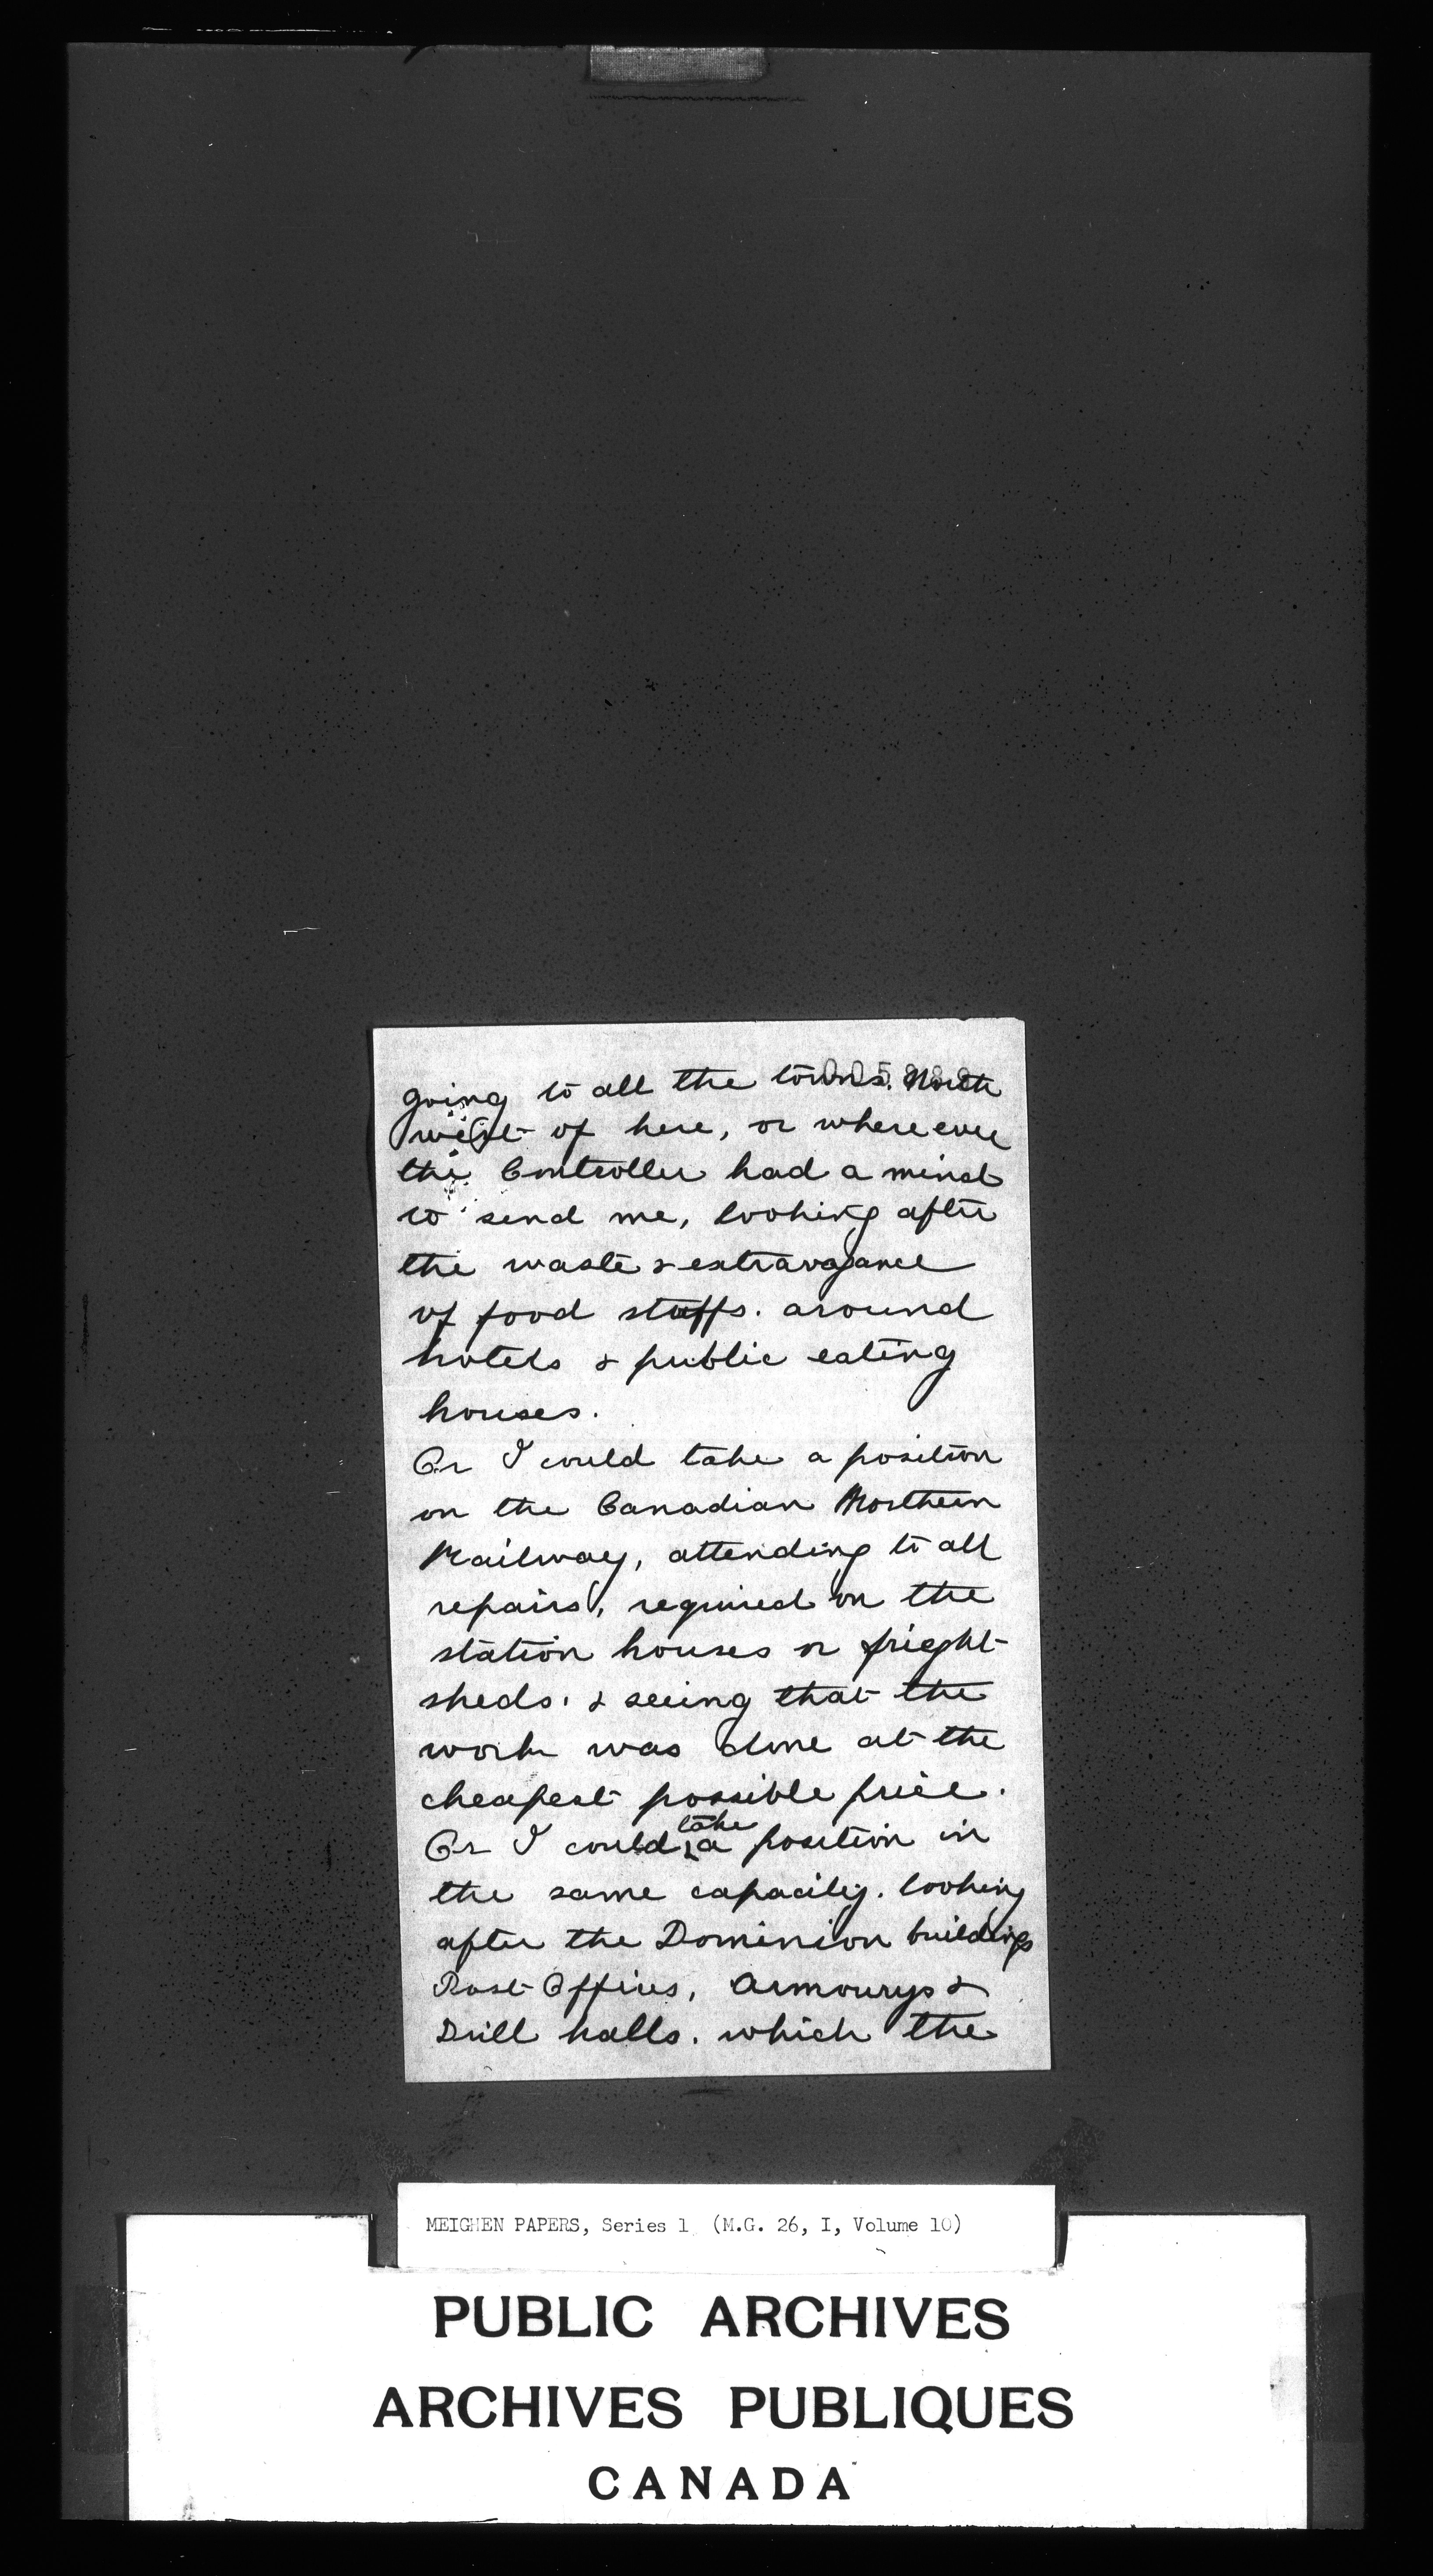 going to all the towns. North
west of here, or where ever
the Controller had a mind
to send me, looking after
the waste & extravagance
of food stuffs. around
hotels & public eating
houses.
Or I could take a position
on the Canadian Northern
Railway, attending to all
repairs, required on the
station houses or frieght
sheds. & seeing that the
work was done at the
cheapest possible price.
take
Or I could a position in
the same capacity. looking
after the Dominion buildings
Post Offices, Armourys &
Drill halls. which the
MEIGHEN PAPERS, Series 1 (M.G. 26, I, Volume 10)
PUBLIC ARCHIVES
ARCHIVES PUBLIQUES
CANADA